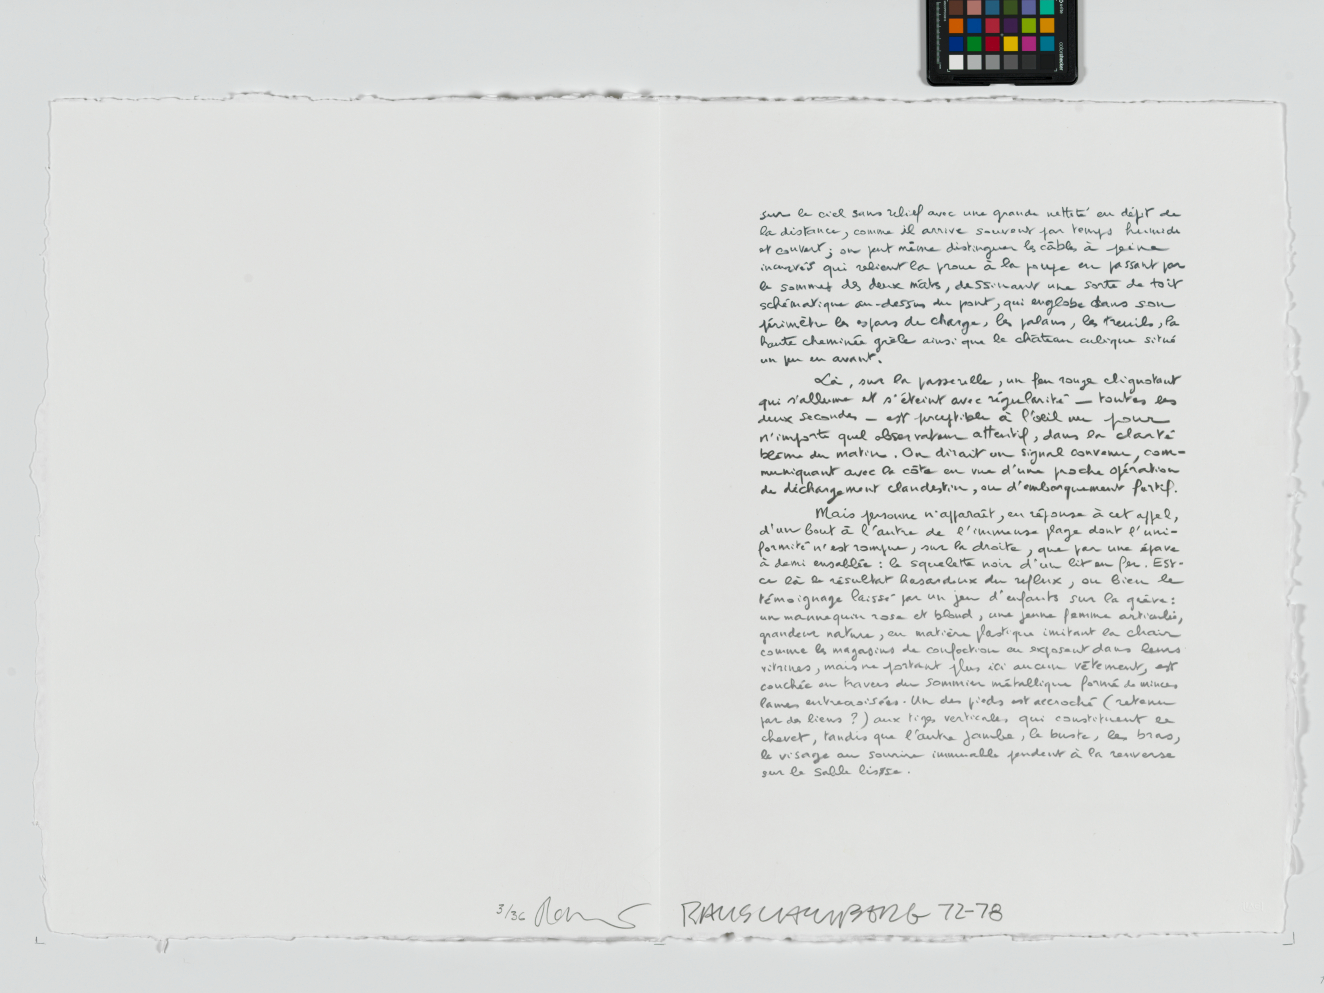 sur le ciel sans relief avec une grande netteté en dépit de
la distance, comme il arrive souvent par temps humide
et couvert ; on peut même distinguer les câbles à peine
incurvés qui relient la proue à la poupe en passant par
le sommet des deux mâts, dessinant une sorte de toit
schématique au-dessus du pont, qui englobe dans son
périmètre les espars de charge, les palans, les treuils, la
haute cheminée grêle ainsi que le château cubique situé
un peu en avant.
Là, sur la passerelle, un feu rouge clignotant
qui s'allume et s'éteint avec régularité — toutes les
deux secondes — est perceptible à l'œil nu pour
n'importe quel observateur attentif, dans la clarté
blême du matin. On dirait un signal convenu, com-
muniquant avec la côte en vue d'une proche opération
de déchargement clandestin, ou d'embarquement furtif.
Mais personne n'apparaît, en réponse à cet appel,
d'un bout à l'autre de l'immense plage dont l'uni-
formité n'est rompue, sur la droite, que par une épave
à demi ensablée : le squelette noir d'un lit en fer. Est-
ce là le résultat hasardeux du reflux, ou bien le
témoignage laissé par un jeu d'enfants sur la grève :
un mannequin rose et blond, une jeune femme articulée,
grandeur nature, en matière plastique imitant la chair
comme les magasins de confection en exposent dans leurs
vitrines, mais ne portant plus ici aucun vêtement, est
couchée en travers du sommier métallique formé de minces
lames entrecroisées. Un des pieds est accroché (retenu
par des liens ?) aux tiges verticales qui constituent le
chevet, tandis que l'autre jambe, le buste, les bras,
le visage au sourire immuable pendent à la renverse
sur le sable lisse.
3/36 RAUSCHENBERG 72-78